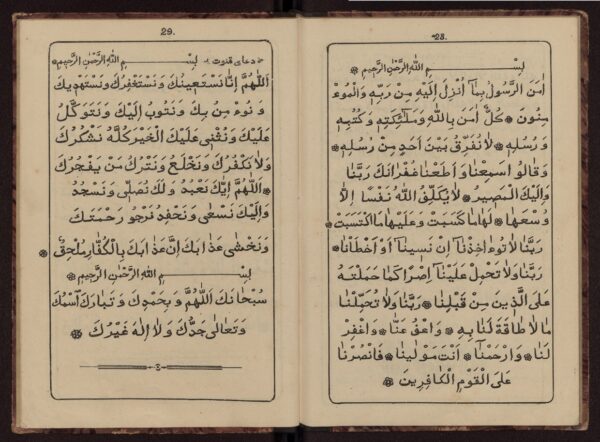 28.
بِسْمِ اللهِ الرَّحْمٰنِ الرَّحِيْمِ ۞
اٰمَنَ الرَّسُولُ بِمَاۤ اُنْزِلَ اِلَيْهِ مِنْ رَبِّهٖ وَالْمُوءْ
مِنُونَ ۞ كُلٌّ اٰمَنَ بِاللهِ وَمَلٰۤئِكَتِهٖ وَكُتُبِهٖ
وَرُسُلِهٖ ۞ لَا نُفَرِّقُ بَيْنَ اَحَدٍ مِنْ رُسُلِهٖ ۞
وَقَالُو اسَمِعْنَا وَ اَطَعْنَا غُفْرَانَكَ رَبَّنَا
وَاِلَيْكَ الْمَصِيرُ ۞ لَا يُكَلِّفُ اللهُ نَفْسًا اِلَّا
وُسْعَهَا ۞ لَهَا مَا كَسَبَتْ وَعَلَيْهَا مَا اكْتَسَبَتْ ۞
رَبَّنَا لَا تُوءَاخِذْنَاۤ اِنْ نَسِينَاۤ اَوْ اَخْطَأْنَا ۞
رَبَّنَا وَلَا تَحْمِلْ عَلَيْنَاۤ اِصْرًا كَمَا حَمَلْتَهُ
عَلَى الَّذِينَ مِنْ قَبْلِنَا ۞ رَبَّنَا وَلَا تُحَمِّلْنَا
مَا لَا طَاقَةَ لَنَا بِهٖ ۞ وَاعْفُ عَنَّا ۞ وَاغْفِرْ
لَنَا ۞ وَارْحَمْنَا ۞ اَنْتَ مَوْلٰينَا ۞ فَانْصُرْنَا
عَلَى الْقَوْمِ الْكَافِرِينَ ۞
29.
دعاى قنوت بِسْمِ اللهِ الرَّحْمٰنِ الرَّحِيْمِ ۞
اَللّٰهُمَّ اِنَّا نَسْتَعِينُكَ وَنَسْتَغْفِرُكَ وَنَسْتَهْدِيكَ
وَ نُوءْمِنُ بِكَ وَنَتُوبُ اِلَيْكَ وَنَتَوَكَّلُ
عَلَيْكَ وَنُثْنِى عَلَيْكَ الْخَيْرَ كُلَّهُ نَشْكُرُكَ
وَلَا نَكْفُرُكَ وَنَخْلَعُ وَنَتْرُكُ مَنْ يَفْجُرُكَ
۞ اَللّٰهُمَّ اِيَّكَ نَعْبُدُ وَ لَكَ نُصَلِّى وَنَسْجُدُ
وَاِلَيْكَ نَسْعٰى وَنَحْفِدُ نَرْجُو رَحْمَتَكَ
وَنَخْشٰى عَذَابَكَ اِنَّ عَذَابَكَ بِالْكُفَّارِ مُلْحِقٌ ۞
بِسْمِ اللهِ الرَّحْمٰنِ الرَّحِيْمِ ۞
سُبْحَانَكَ اللّٰهُمَّ وَ بِحَمْدِكَ وَ تَبَارَكَ اسْمُكَ
وَ تَعَالٰى جَدُّكَ وَ لَا اِلٰهَ غَيْرُكَ ۞